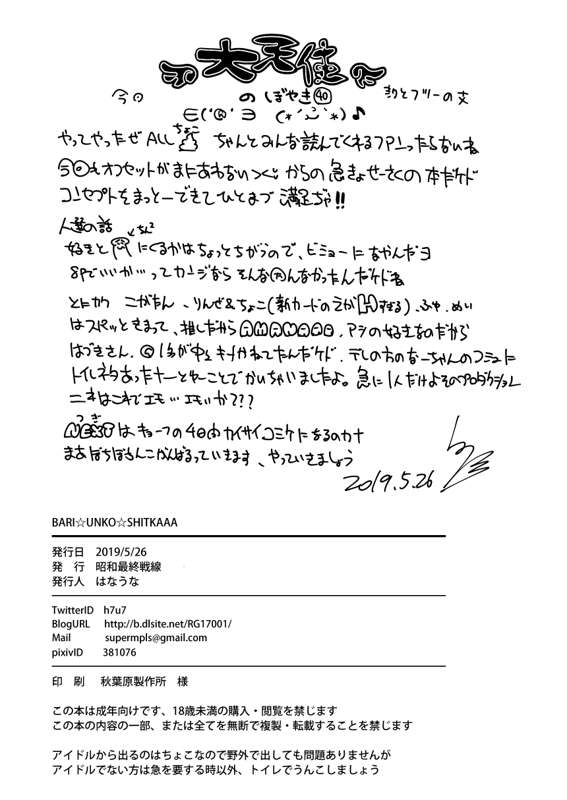 大天使
今日 のぼやき㊵
∈('®'∋ (*'ω'*)♪
やってやったぜALL ちょこ ちゃんとみんな読んでくれるファンったらないね
今回もオフセットがまにあわない からの急きょせーさくの本だけど
コンセプトをまっとーできてひとまず満足ぢゃ!!
人選の話
好きと にくるかはちょっとちがうので、ビミョーになやんだヨ
8Pでいいか…ってカンジなら そんな んなかったんだけどね
とにかく こがたん、りんぜ&ちょこ(新カードのえが すぎる)、ふゆ、めい
はスパッときまって、推しだから 、アシの好きなのだから
はづきさん。 が中々キまかねてたんだケド、デレの方のなーちゃんのコミュに
トイレネタあったナーとゆーことでかいちゃいましたよ。急に1人だけよそのプロダクション
これはこれでエモ…エモいか???
つぎ
NEXTは 4日間カイサイコミケになるのカナ
まあぼちぼち がんばっていきます、やっていきましょう
2019.5.26
BARI☆UNKO☆SHITKAAA
発行日 2019/5/26
発 行 昭和最終戦線
発行人 はなうな
TwitterID h7u7
BlogURL http://b.dlsite.net/RG17001/
Mail supermpls@gmail.com
pixivID 381076
印 刷 秋葉原製作所 様
この本は成年向けです、18歳未満の購入・閲覧を禁じます
この本の内容の一部、または全てを無断で複製・転載することを禁じます
アイドルから出るのはちょこなので野外で出しても問題ありませんが
アイドルでない方は急を要する時以外、トイレでうんこしましょう